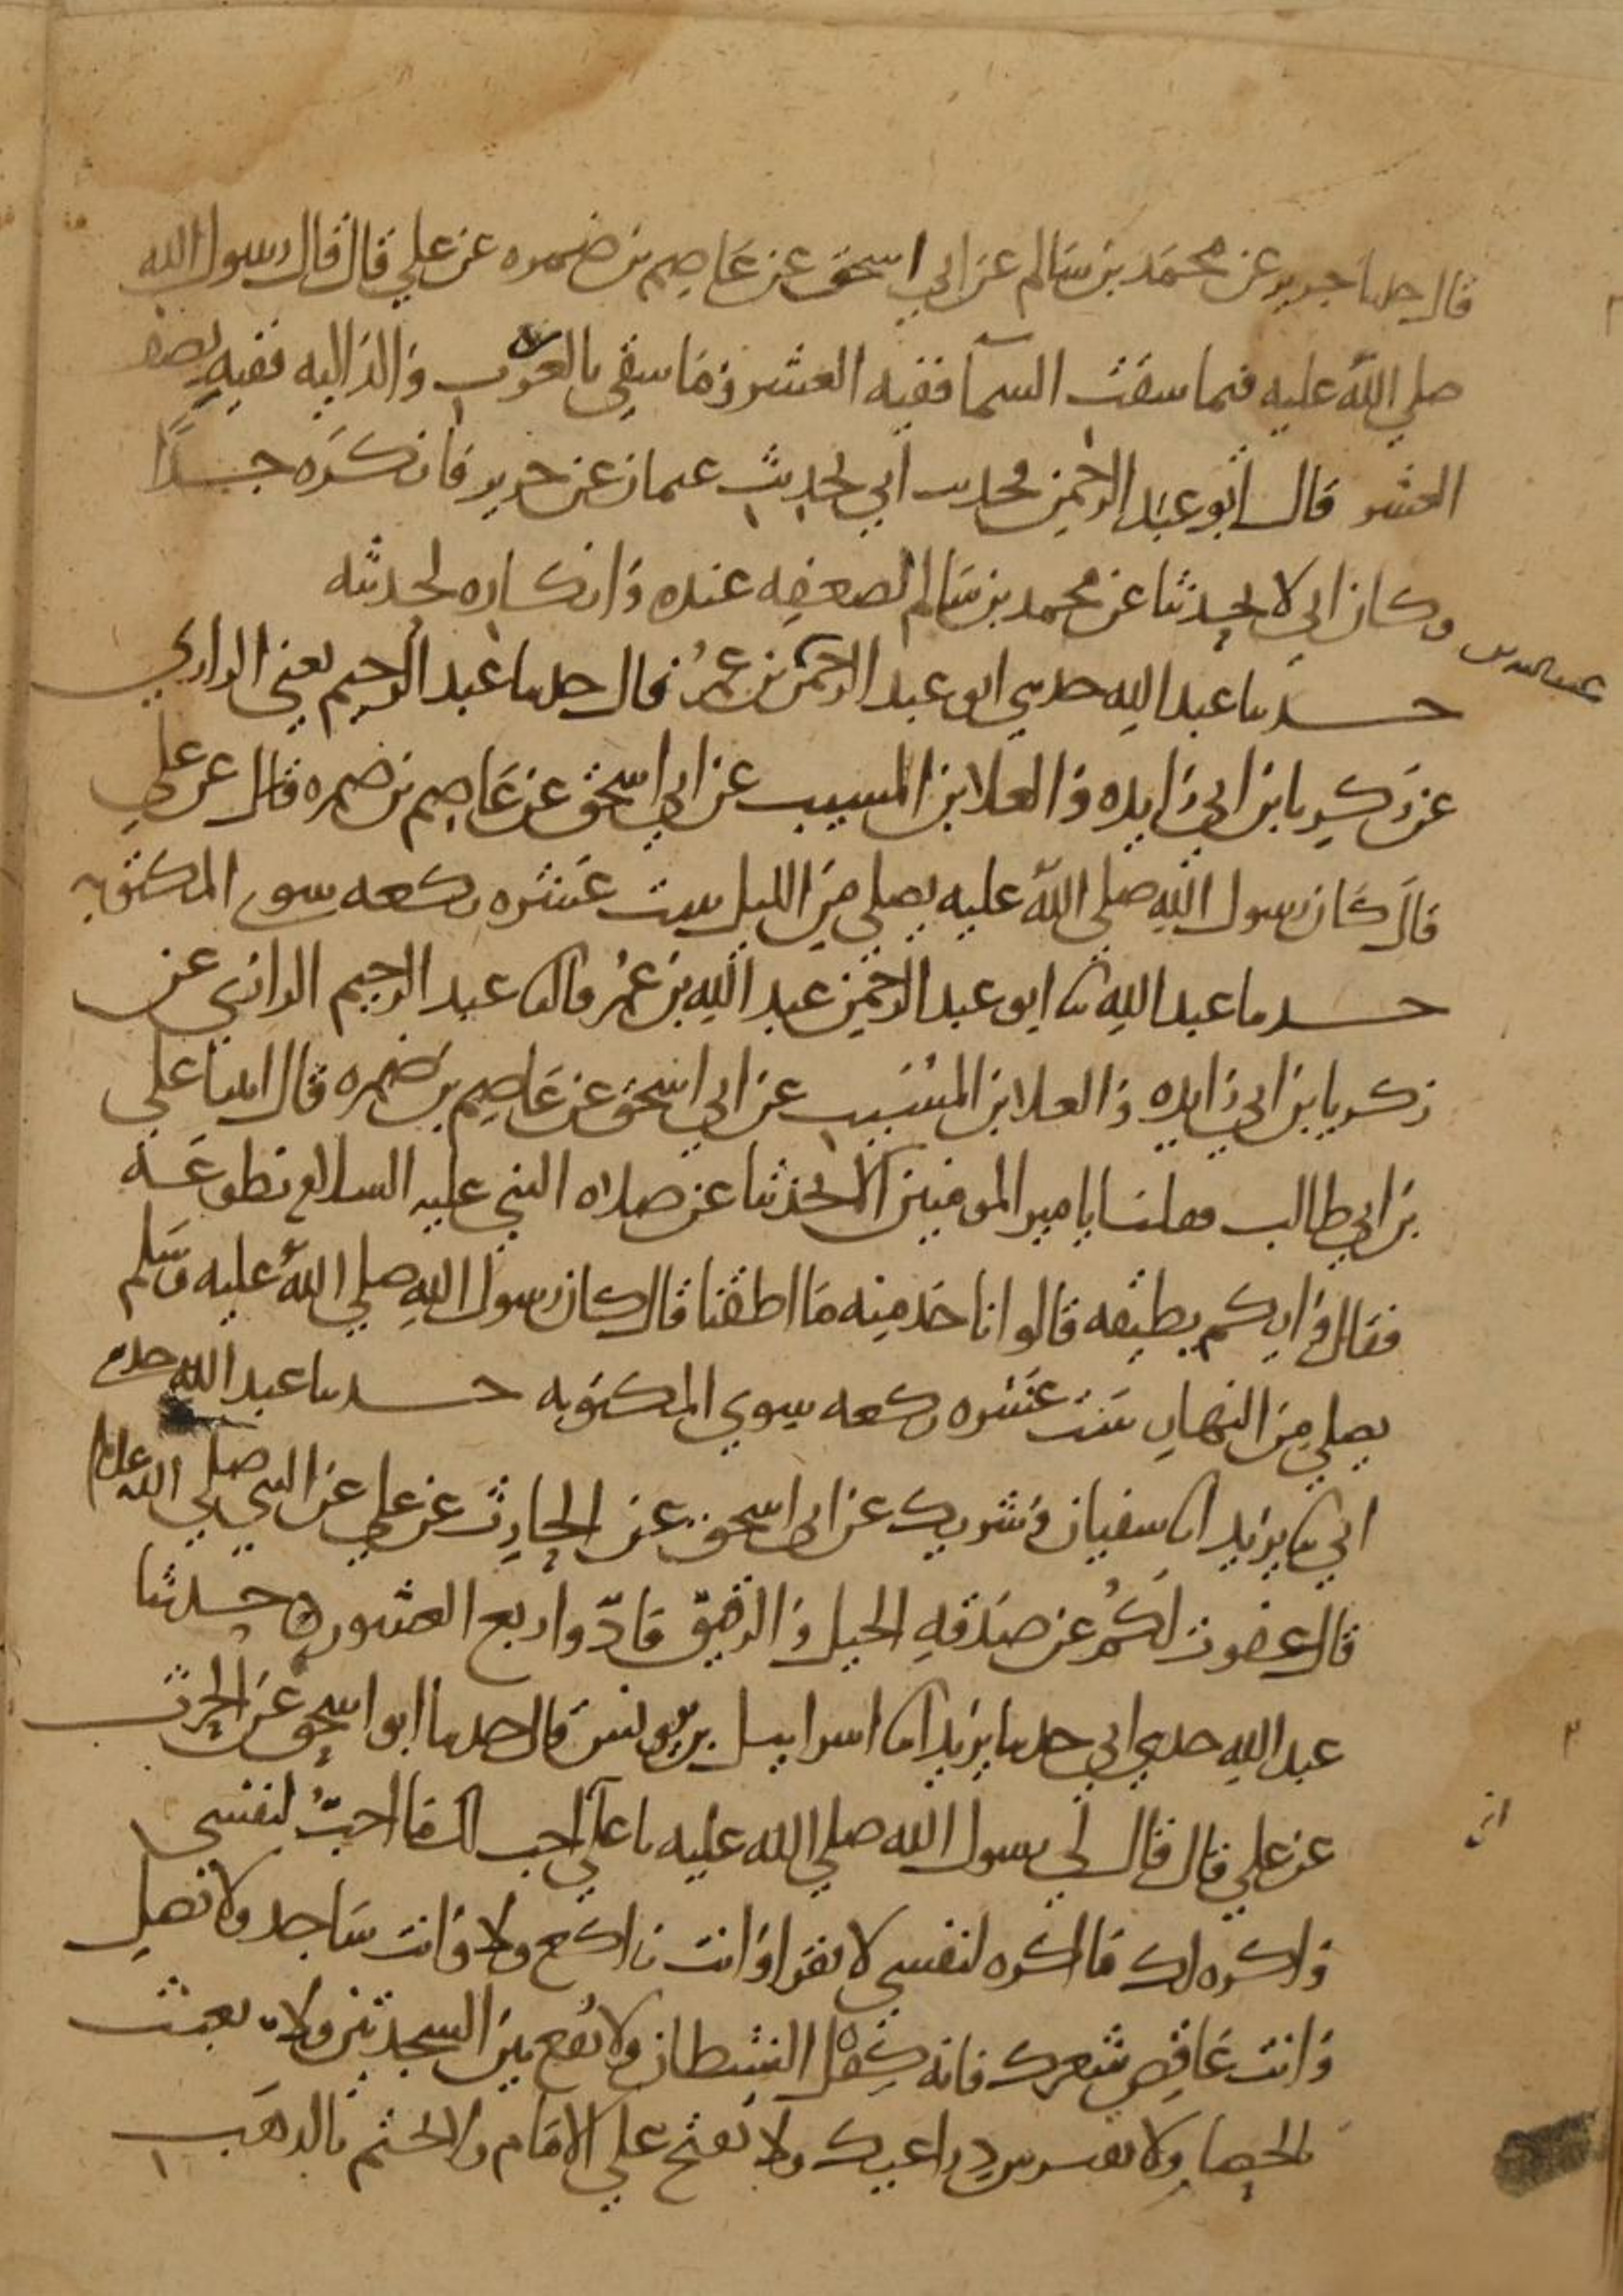 قال حدثنا جرير عن محمد بن سالم عن ابي اسحق عن عاصم بن ضمره عن علي قال قال رسول الله
صلي الله عليه فيما سقت السما ففيه العشر وما سقي بالغرب والداليه ففيه نصف
العشر قال ابو عبد الرحمن فحدثت ابي بحديث عثمان عن جرير فانكره جدا
وكان ابي لا يحدثنا عن محمد بن سالم لضعفه عنده وانكاره لحديثه
حدثنا عبد الله حدثني ابو عبد الرحمن بن عمر قال حدثنا عبد الرحيم يعني الرازي
عبد الله بن
عن زكريا بن ابي زايده والعلا بن المسيب عن ابي اسحق عن عاصم بن ضمره قال عن علي
قال كان رسول الله صلي الله عليه يصلي من الليل ست عشره ركعه سوي المكتوبه
حدثنا عبد الله ثنا ابو عبد الرحمن عبد الله بن عمر قال ثنا عبد الرحيم الرازي عن
زكريا بن ابي زايده والعلا بن المسيب عن ابي اسحق عن عاصم بن ضمره قال اتينا علي
بن ابي طالب فقلنا يا امير المومنين الا تحدثنا عن صلاه النبي عليه السلام تطوعه
فقال وايكم يطيقه قالوا ناخذ منه ما اطقنا قال كان رسول الله صلي الله عليه وسلم
يصلي من النهار ست عشره ركعه سوي المكتوبه حدثنا عبد الله حدثني
ابي ثنا يزيد انا سفيان وشريك عن ابي اسحق عن الحارث عن علي عن النبي صلي الله عليه
قال عفوت لكم عن صدقه الخيل والرقيق فادوا ربع العشور ه حدثنا
عبد الله حدثني ابي حدثنا يزيد انا اسراييل بن يونس قال حدثنا ابو اسحق عن الحرث
عن علي قال قال لي رسول الله صلي الله عليه يا علي احب لك ما احب لنفسي
اني
واكره لك ما اكره لنفسي لا تقرا وانت راكع ولا وانت ساجد ولا تصل
وانت عاقص شعرك فانه كفل الشيطان ولا تقع بين السجدتين ولا تعبث
بالحصا ولا تفترش ذراعيك ولا تفتح علي الامام ولا تختم بالذهب